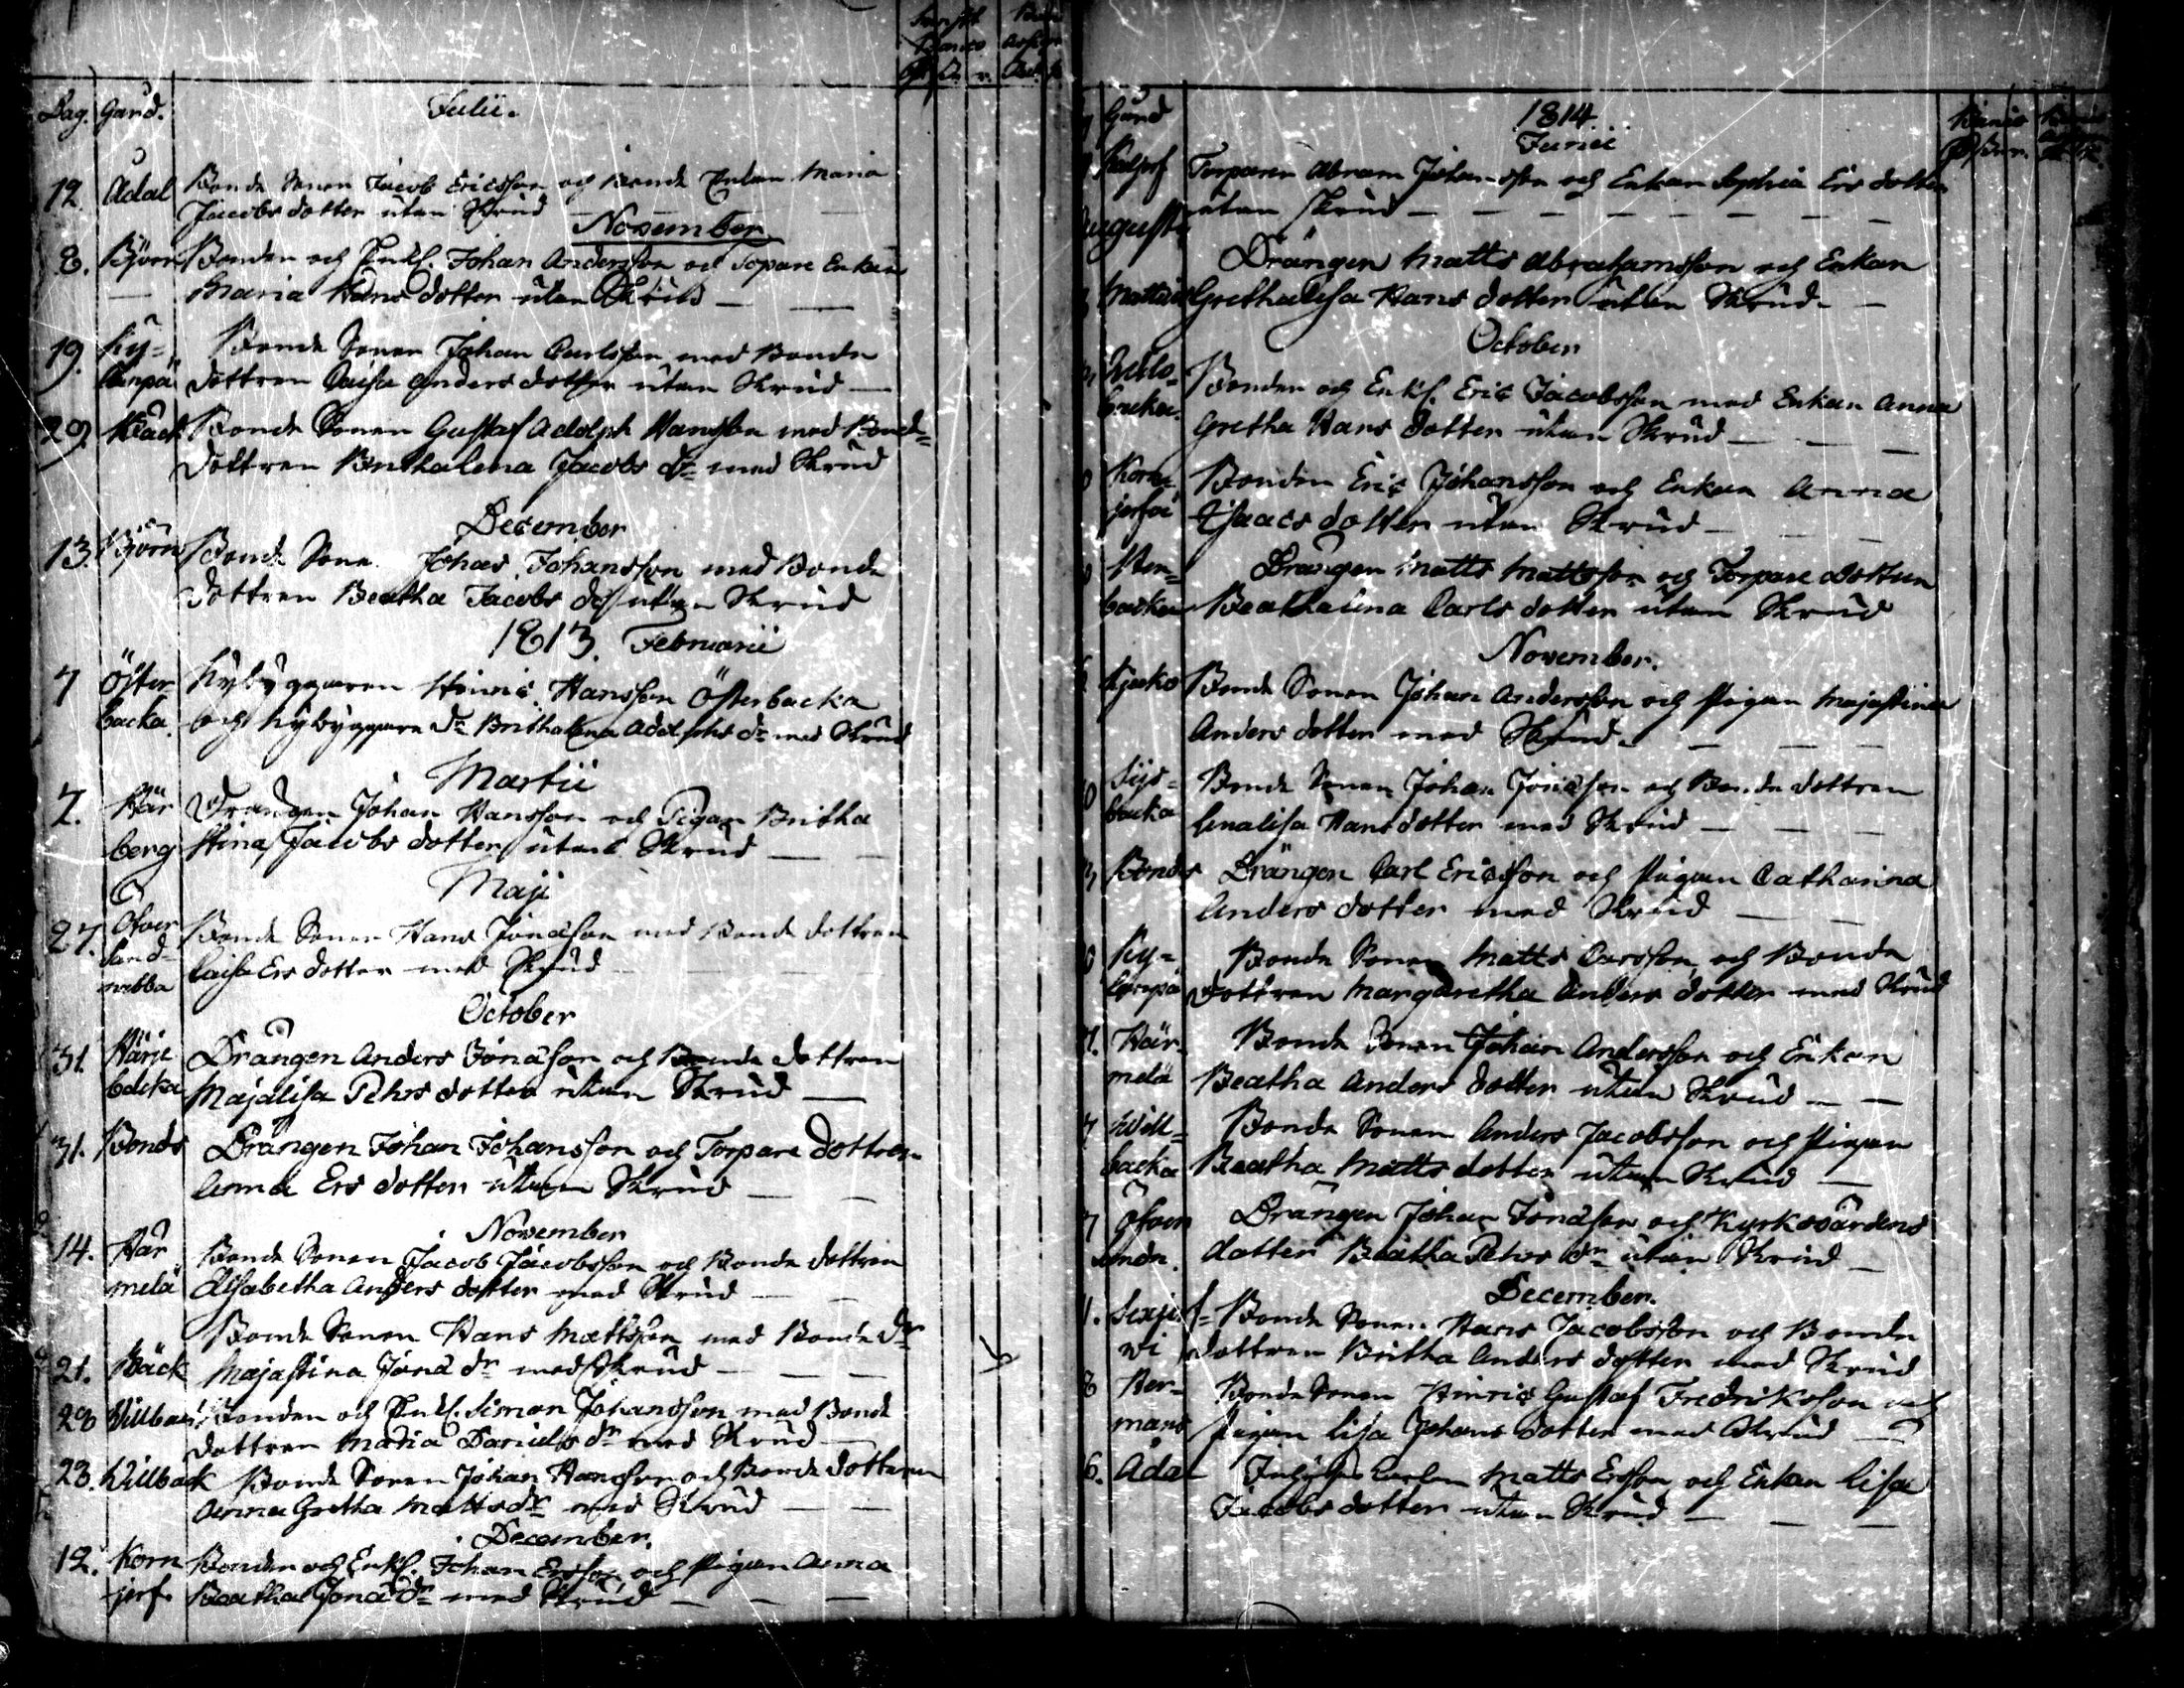 Dag. Gård. Julii.
12. Ådal Bonde Sonen Jacob Ericsson och Bonde Enkan Maria
Jacobs dotter utan Skrud
November
8. Björn Bonden och Enkl. Johan Andersson och Torpare Enkan
Maria Hans dotter utan Skrud
19. Ky= Bonde Sonen Johan Carlsson med Bonde
dottren Caisa Anders dotter utan Skrud
29. Bäck Bonde Sonen Gustaf Adolph Hansson med Bond=
dottren Brithalena Jacobs dr med Skrud
December
13. Björn Bonde Sone Johan Johansson med Bonde
dottren Beatha Jacobs dr utan Skrud
1813. Februarii
7 Öster= Nybyggaren Hinric Hansson Österbacka
backa. och Nybyggare dr Brithalena Adolphs dr med Skrud
Martii
7. Här Drängen Johan Hansson och Pigan Britha
berg Stina Jacobs dotter utan Skrud
Maji
27. Öfver Bonde Sonen Hans Jonasson med Bonde dottren
Sand= Caisa Ers dotter med Skrud
nabba
October
31. Härje Drängen Anders Jonasson och Bonde dottren
backa Majalisa Pehrs dotter utan Skrud
31. Bonds Drängen Johan Johansson och Torpare dottren
Anna Ers dotter utan Skrud
November
14. Här Bonde Sonen Jacob Jacobsson och Bonde dottren
melä Elisabetha Anders dotter med Skrud
Bonde Sonen Hans Mattsson med Bonde dr
21. Bäck Majastina Jona dr med Skrud
28 Willback Bonden och Enkl. Simon Johansson med Bonde
dottren Maria Daniels dr med Skrud
28. Willback Bonde Sonen Johan Hansson och Bonde dottren
Anna Gretha Matts dr med Skrud
December.
12. Korn Bonden och Enkl. Johan Ersson och Pigan Anna
jerf. Beatha Jona dr med Skrud
Gård 1814
Junii
Torparen Abram Johansson och Enkan Sophia Ers dotter
utan Skrud
Augusti
Drängen Matts Abrahamsson och Enkan
Grethalisa Hans dotter utan Skrud
October
Bonden och Enkl. Eric Jacobsson med Enkan Anna
Gretha Hans dotter utan Skrud
Korn= Bonden Eric Johansson och Enkan Anna
Isaacs dotter utan Skrud
Drängen Matts Mattsson och Torpare dottren
backa Beathalena Carls dotter utan Skrud
November.
Bonde Sonen Johan Andersson och Pigan Majastina
Anders dotter med Skrud.
Bonde Sonen Johan Jonasson och Bonde dottren
backa Lenalisa Hans dotter med Skrud
Bonds Drängen Carl Ericsson och Pigan Catharina
Anders dotter med Skrud
Ky= Bonde Sonen Matts Carsson och Bonde
dottren Margaretha Anders dotter med Skrud
Här= Bonde Sonen Johan Andersson och Enkan
melä Beatha Anders dotter utan Skrud
Will= Bonde Sonen Anders Jacobsson och Pigan
backa Beatha Matts dotter utan Skrud
Drängen Johan Jonasson och Kyrkovärdens
dotter Beatha Pehrs dr utan Skrud
December.
Bonde Sonen Hans Jacobsson och Bonde
dottren Britha Anders dotter med Skrud
Ber= Bonde Sonen Hinric Gustaf Fredriksson och
mans Pigan Lisa Johans dotter med Skrud
6. Ådal Matts Ersson och Enkan Lisa
Jacobs dotter utan Skrud